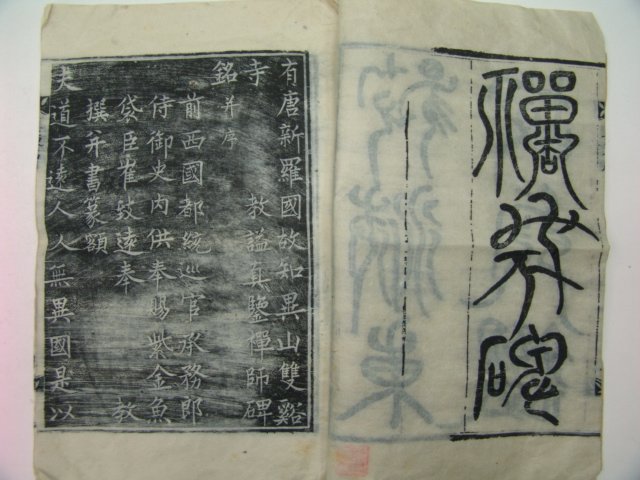 禪師碑
有唐新羅國故知異山雙谿
寺 教謚真鑒禪師碑
銘 并序
前西國都統巡官承務郎
侍御史內供奉賜紫金魚
袋臣崔致遠奉 教
撰并書篆額
夫道不遠人人無異國是以